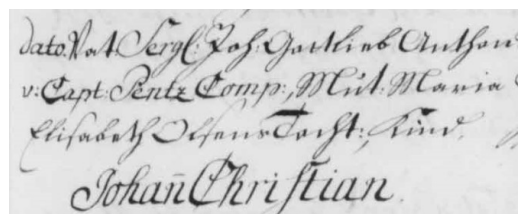 dato. Vat: Sergt: Joh: Gottlieb Anthon
v: Capt: Pentz Comp:, Mut: Maria
Elisabeth Olsens Tocht:, Kind.
Johan̄ Christian.